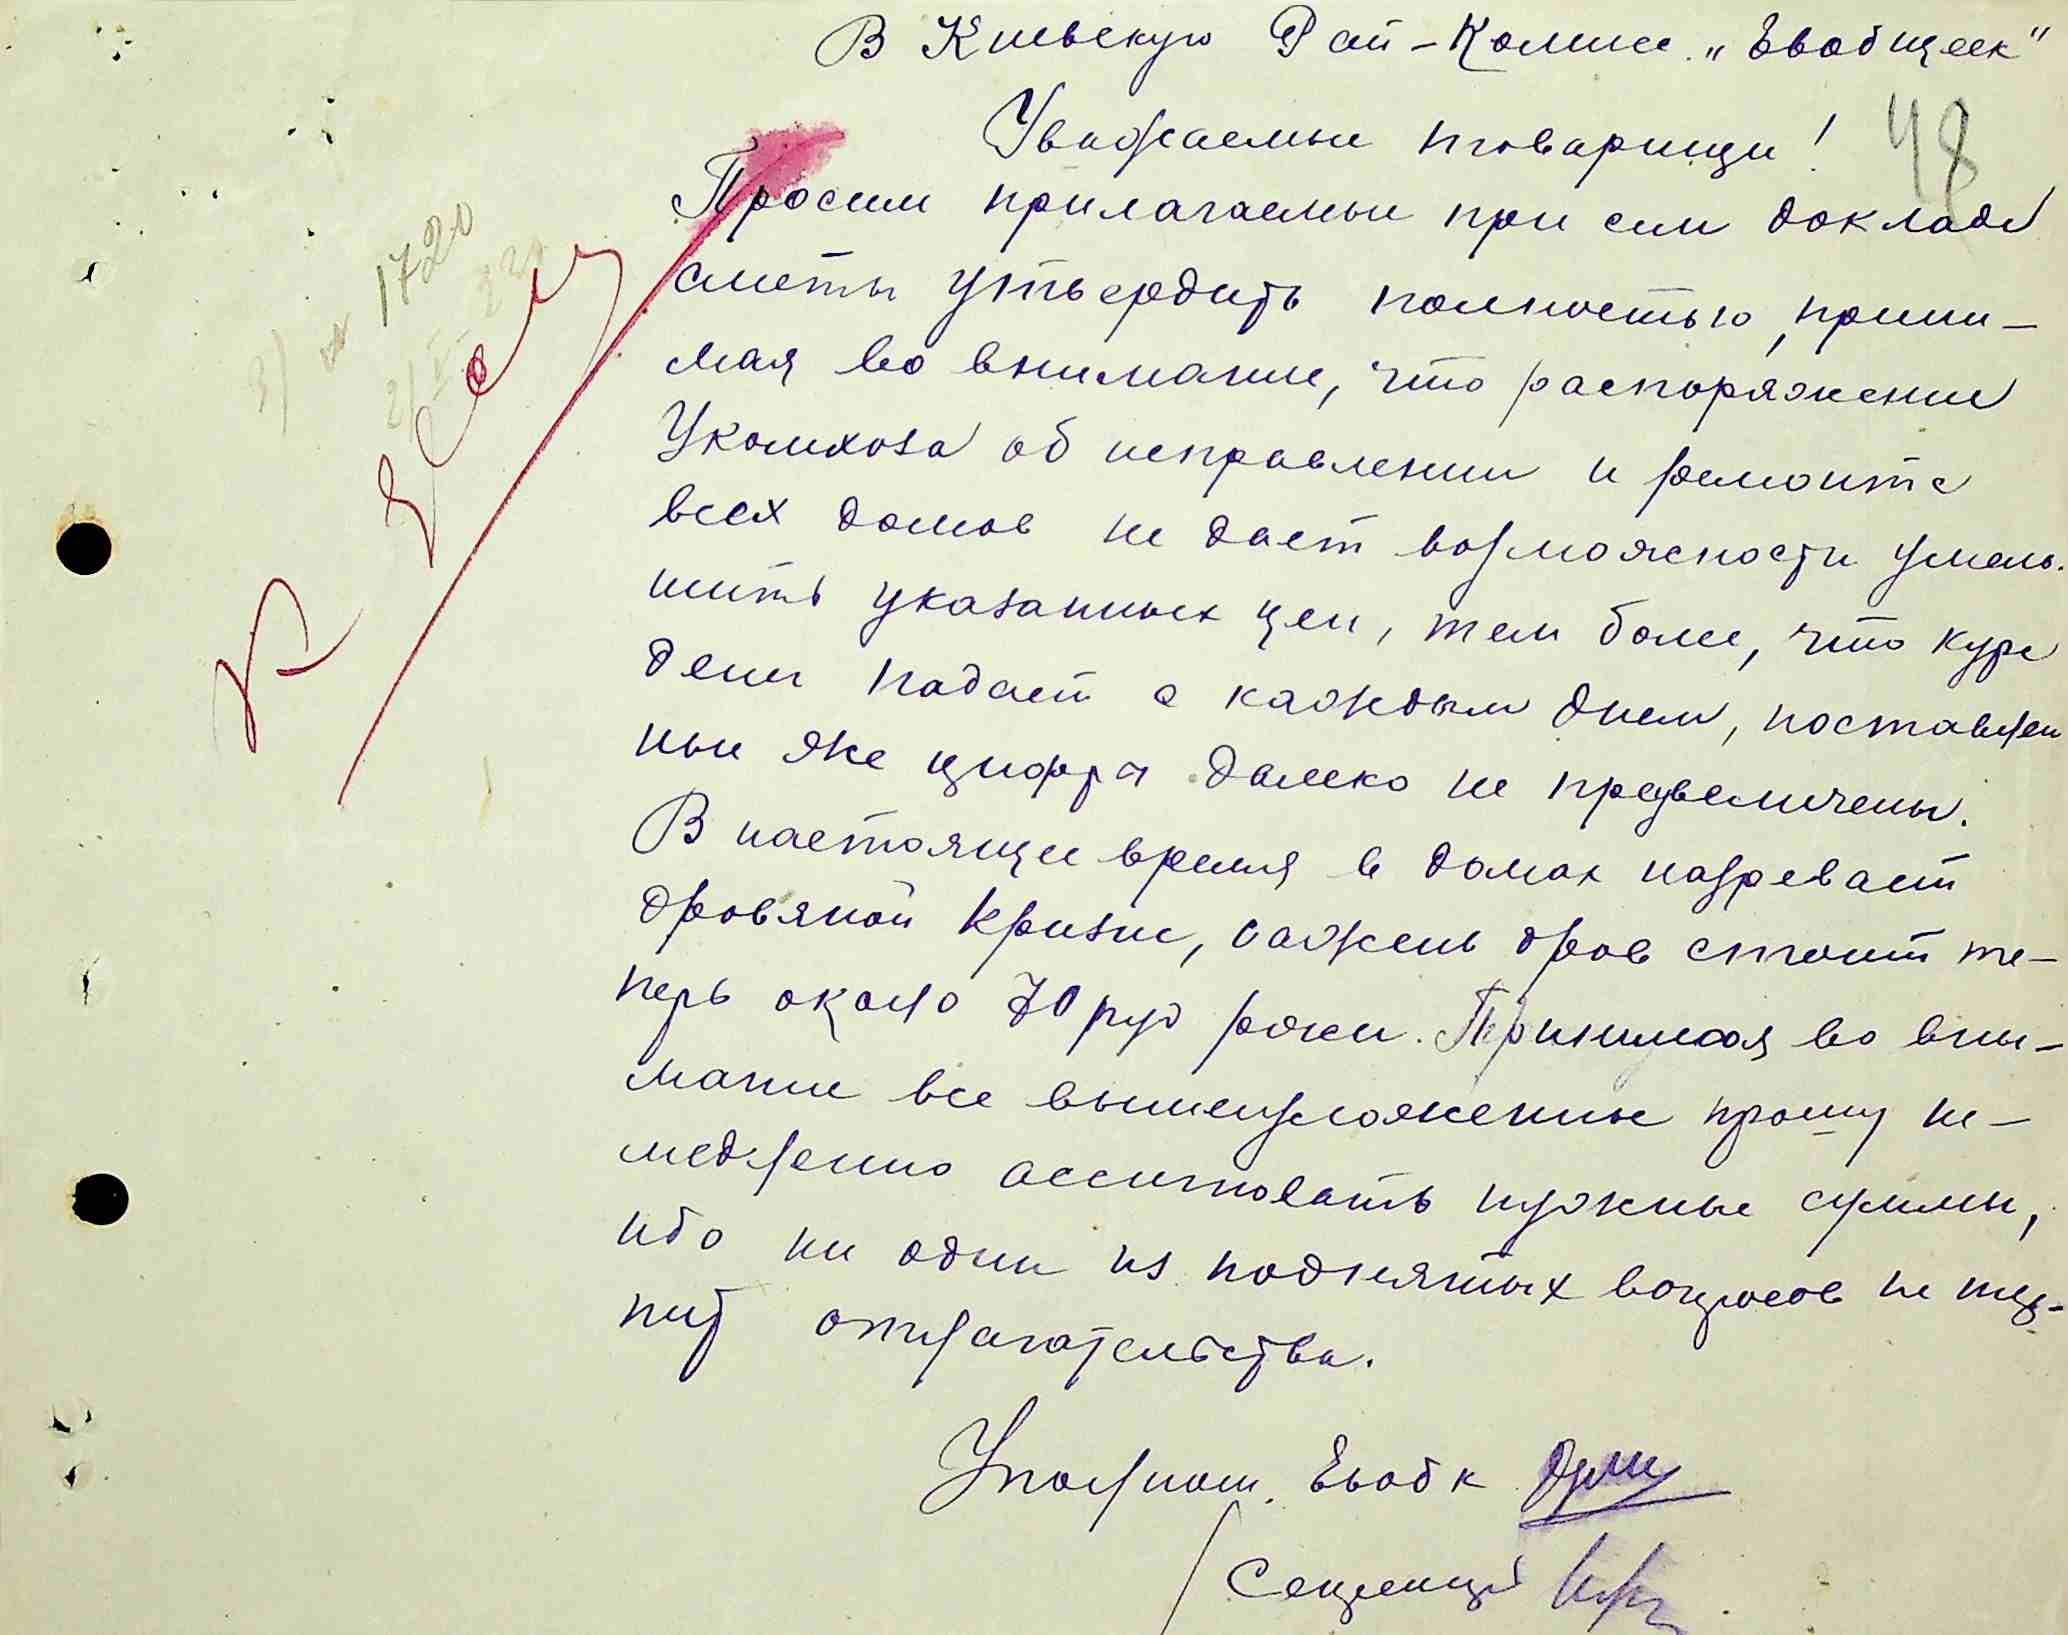 В Киевскую Рай-Комисс. „Евобщеск"
48
Уважаемые товарищи!
Просим прилагаемые при сем доклады
сметы утвердить полностью, прини-
мая во внимание, что распоряжение
Укомхоза об исправлении и ремонте
всех домов не дает возможности умень-
шить указанных цен, тем более, что курс
денег падает с каждым днем, поставлен
ные же цифры далеко не преувеличены.
В настоящее время в домах назревает
дровяной кризис, сажень дров стоит те-
перь около 70 руб ржи. Принимая во вни-
мание все вышеизложенные прошу не-
медленно ассигновать нужные суммы,
ибо ни один из поднятых вопросов не тер-
пит отлагательства.
Уполном. Евобк
Секретарь
1720
К делу